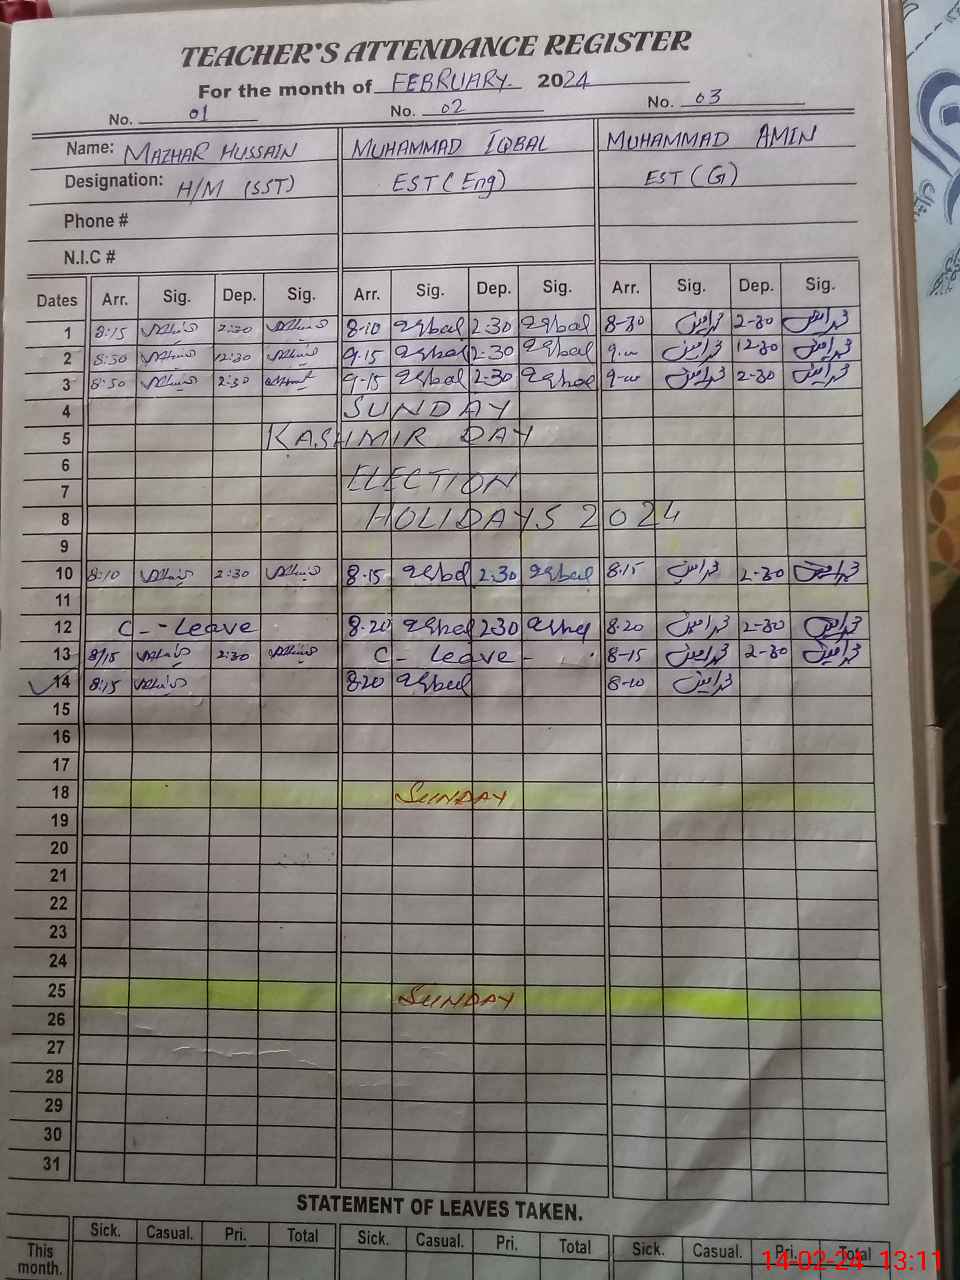 TEACHER'S ATTENDANCE REGISTER
For the month of FEBRUARY 2024
No. 01 No. 02 No. 03
Name: MAZHAR HUSSAIN MUHAMMAD IQBAL MUHAMMAD AMIN
Designation: H/M (SST) EST (Eng) EST (G)
Phone #
N.I.C #
Dates Arr. Sig. Dep. Sig. Arr. Sig. Dep. Sig. Arr. Sig. Dep. Sig.
1 8:15 2:30 8-10 iqbal 2:30 iqbal 8-30 محمد امین 2-30 محمد امین
2 8:30 12:30 9.15 iqbal 12.30 iqbal محمد امین 12-30 محمد امین
3 8:50 2:30 9-15 iqbal 2.30 iqbal محمد امین 2-30 محمد امین
4 SUNDAY
5 KASHMIR DAY
6
7 ELECTION
8 HOLIDAYS 2024
9
10 8:10 2:30 8.15 iqbal 2:30 iqbal 8.15 محمد امین 2-30 محمد امین
11
12 C-- Leave 8.20 iqbal 230 iqbal 8.20 محمد امین 2-30 محمد امین
13 8/15 2:30 C- Leave - 8-15 محمد امین 2-30 محمد امین
14 8:15 8.20 iqbal 8-10 محمد امین
15
16
17
18 SUNDAY
19
20
21
22
23
24
25 SUNDAY
26
27
28
29
30
31
STATEMENT OF LEAVES TAKEN.
Sick. Casual. Pri. Total Sick. Casual. Pri. Total Sick. Casual. Pri. Total
This month.
14-02-24 13:11